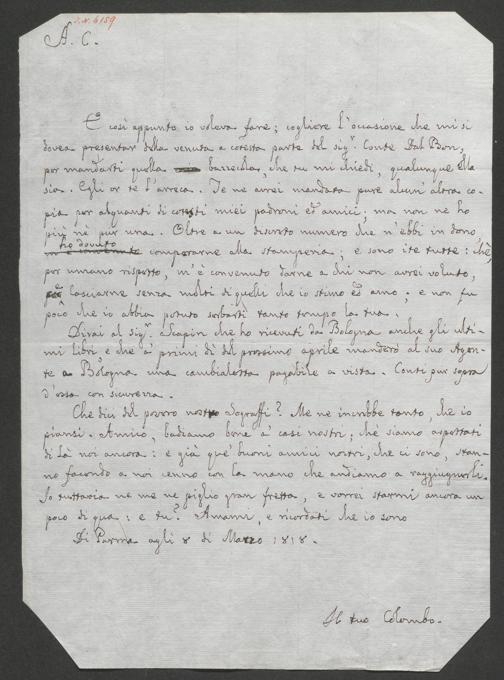 J.N. 6159
A. C.
E così appunto io voleva fare; cogliere l'occasione che mi si
dovea presentar della venuta a cotesta parte del sigr. Conte Dal Bon,
per mandarti quella bazzecola, che tu mi chiedi, qualunque ella
sia. Egli or te l'arreca. Te ne avrei mandata pure alcun'altra co-
pia per alquanti di cotesti miei padroni ed amici; ma non ne ho
più nè pur una. Oltre a un discreto numero che n'ebbi in dono,
ho dovuto
comperarne alla stamperia; e sono ite tutte: chè,
per umano rispetto, m'è convenuto darne a chi non avrei voluto,
lasciarne senza molti di quelli che io stimo ed amo; e non fu
poco che io abbia potuto serbarti tanto tempo la tua.
Dirai al sigr. Scapin che ho ricevuti da Bologna anche gli ulti-
mi libri e che a' primi dì del prossimo aprile manderò al suo Agen-
te a Bologna una cambialetta pagabile a vista. Conti pur sopra
d'essa con sicurezza.
Che dici del povero nostro Adograffi? Me ne increbbe tanto, che io
piansi. Amico, badiamo bene a' casi nostri; chè siamo aspettati
di là noi ancora: e già que' buoni amici nostri, che ci sono, stan-
no facendo a noi cenno con la mano che andiamo a raggiugnerli.
Io tuttavia ne me ne piglio gran fretta, e vorrei starmi ancora un
poco di qua: e tu? Amami, e ricordati che io sono
Di Parma agli 8 di Marzo 1818.
Il tuo Colombo.